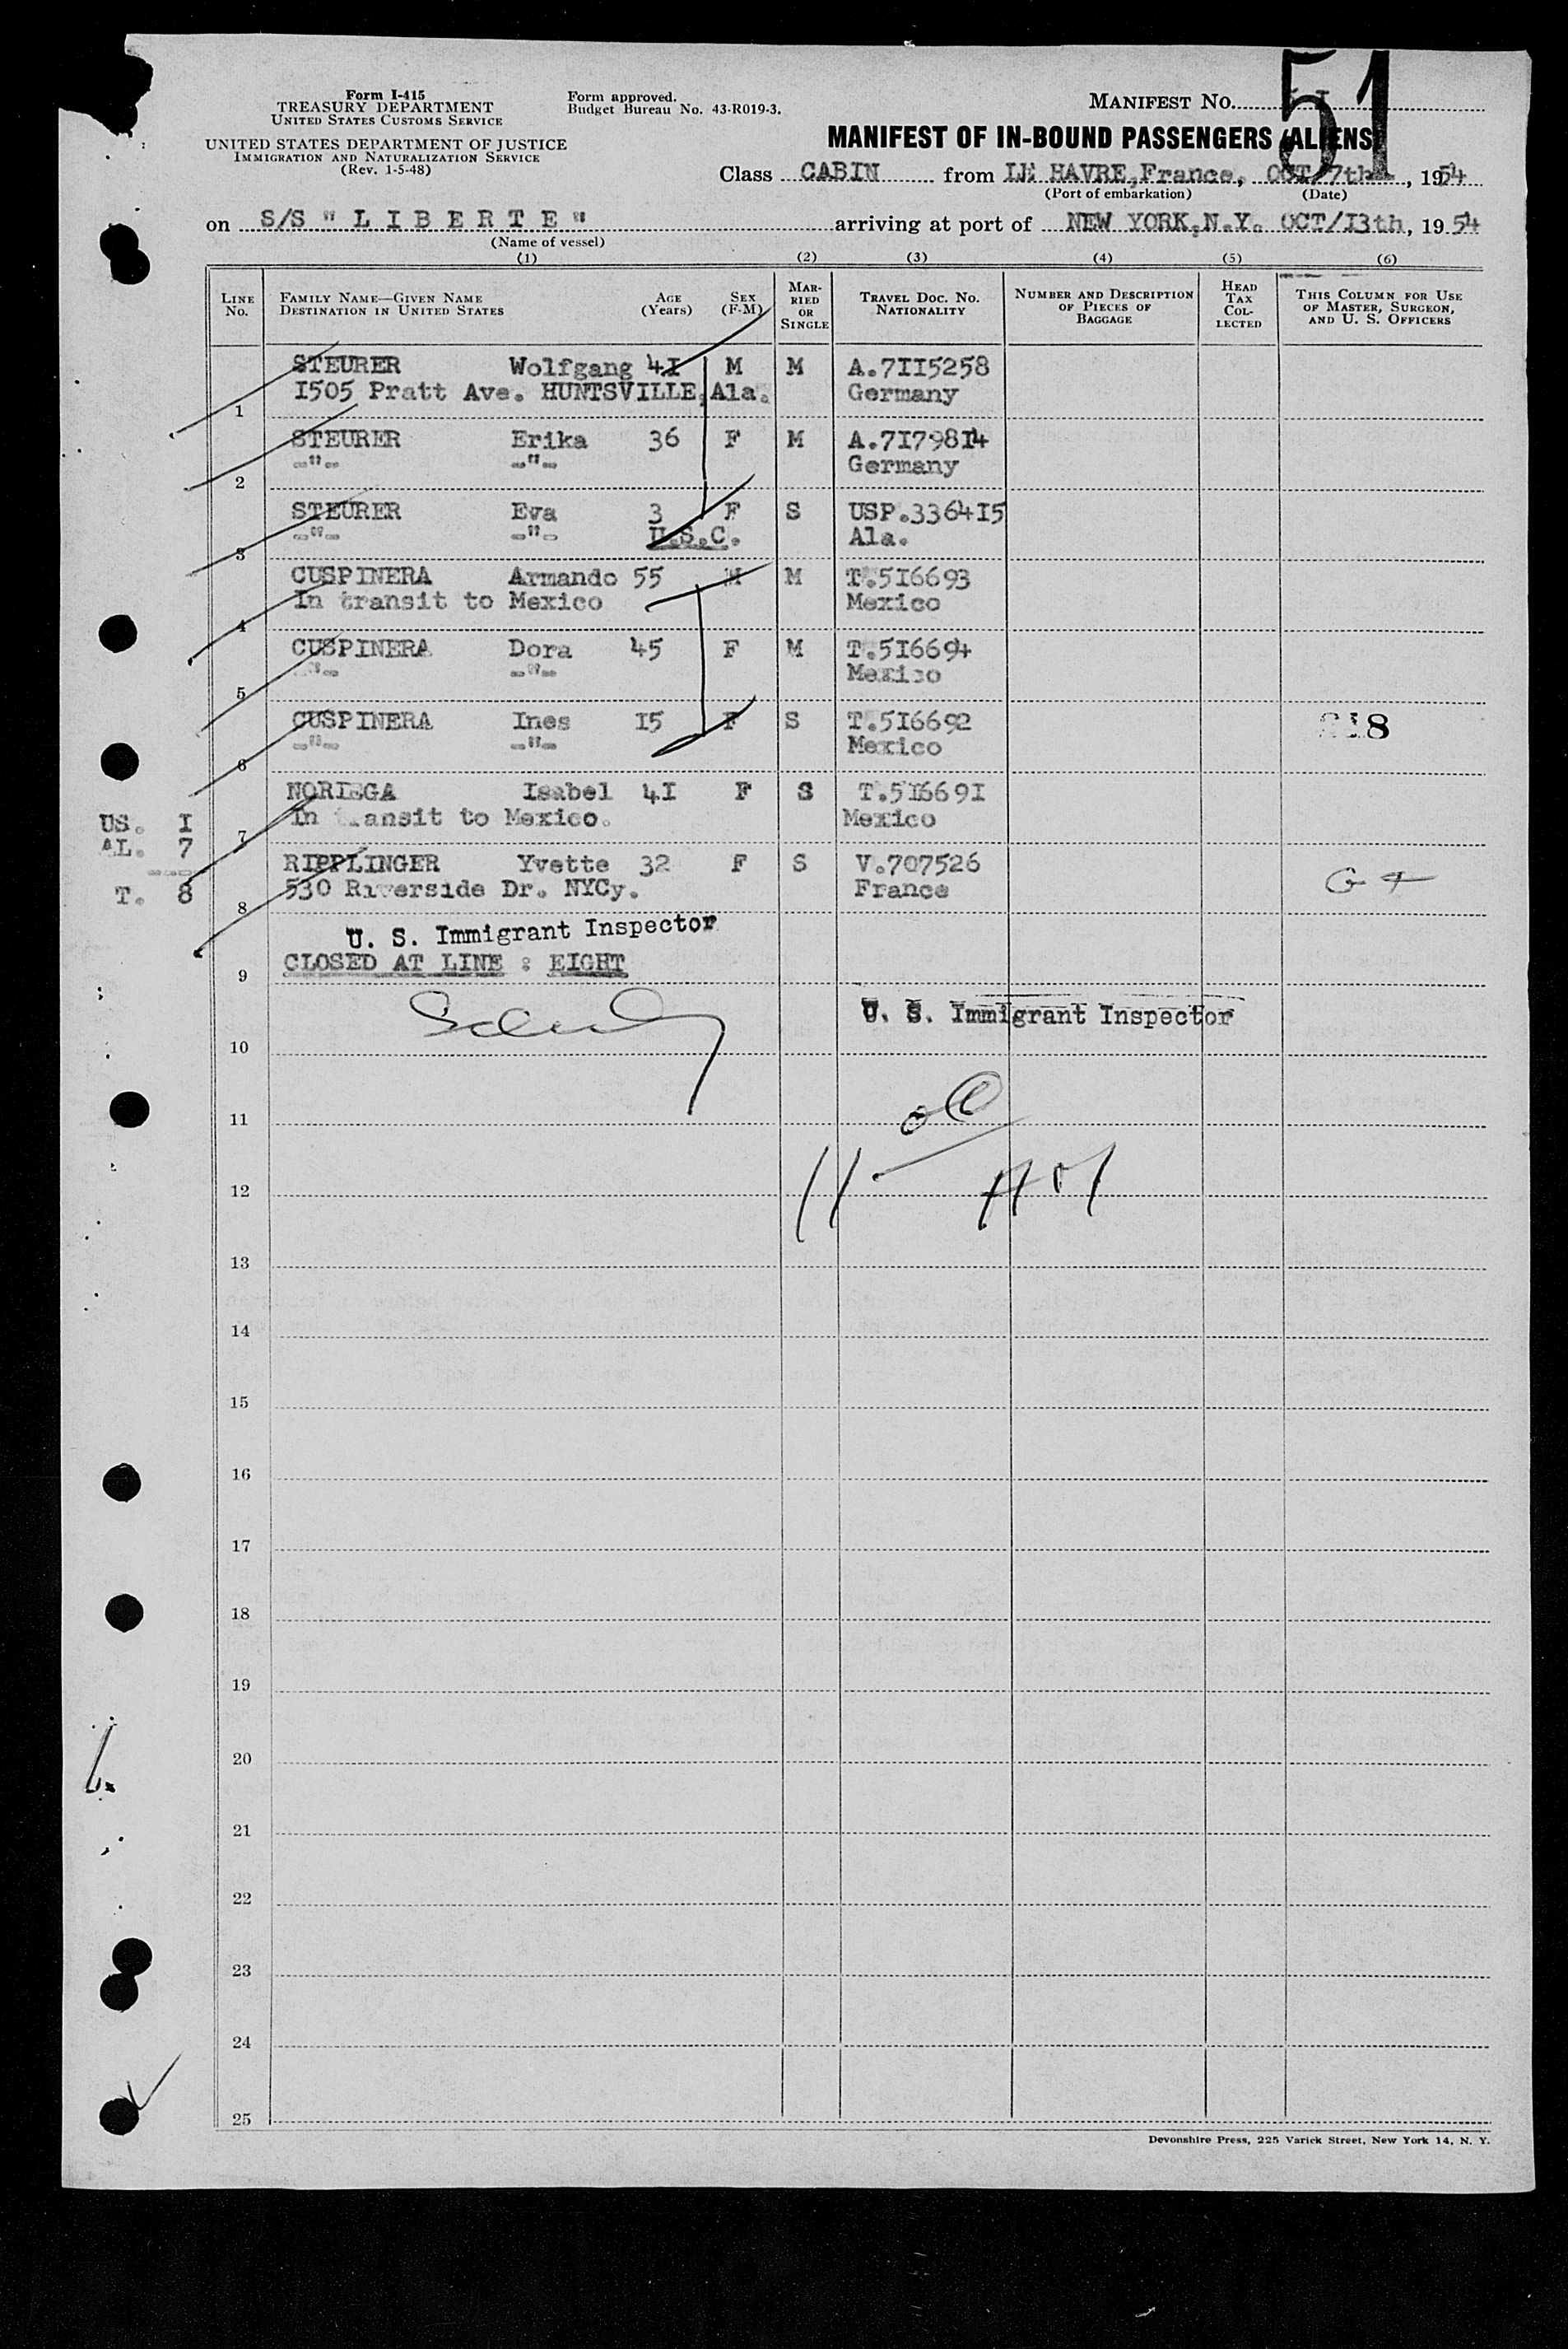 51
Form I-415
TREASURY DEPARTMENT
UNITED STATES CUSTOMS SERVICE
UNITED STATES DEPARTMENT OF JUSTICE
IMMIGRATION AND NATURALIZATION SERVICE
(Rev. 1-5-48)
Form approved.
Budget Bureau No. 43-R019-3.
MANIFEST NO.
MANIFEST OF IN-BOUND PASSENGERS (ALIENS)
Class CABIN from LE HAVRE,France, OCT/7th , 1954
(Port of embarkation) (Date)
on S/S " L I B E R T E " arriving at port of NEW YORK,N.Y. OCT/I3th, 1954
(Name of vessel)
(1) (2) (3) (4) (5) (6)
LINE NO. FAMILY NAME—GIVEN NAME DESTINATION IN UNITED STATES AGE (YEARS) SEX (F-M) MARRIED OR SINGLE TRAVEL DOC. NO. NATIONALITY NUMBER AND DESCRIPTION OF PIECES OF BAGGAGE HEAD TAX COLLECTED THIS COLUMN FOR USE OF MASTER, SURGEON, AND U. S. OFFICERS
STEURER Wolfgang 4I M M A.7II5258
1 I505 Pratt Ave. HUNTSVILLE,Ala. Germany
STEURER Erika 36 F M A.7I798I4
2 -"- -"- Germany
STEURER Eva 3 F S USP.3364I5
3 -"- -"- U.S.C. Ala.
CUSPINERA Armando 55 M M T.5I6693
4 In transit to Mexico Mexico
CUSPINERA Dora 45 F M T.5I6694
5 -"- -"- Mexico
CUSPINERA Ines I5 F S T.5I6692
6 -"- -"- Mexico
NORIEGA Isabel 4I F S T.5I669I
7 In transit to Mexico. Mexico
RIPPLINGER Yvette 32 F S V.707526
8 530 Riverside Dr. NYCy. France
US. I
AL. 7
T. 8
U. S. Immigrant Inspector
9 CLOSED AT LINE : EIGHT
U. S. Immigrant Inspector
10
11
12
13
14
15
16
17
18
19
20
21
22
23
24
25
Devonshire Press, 225 Varick Street, New York 14, N. Y.